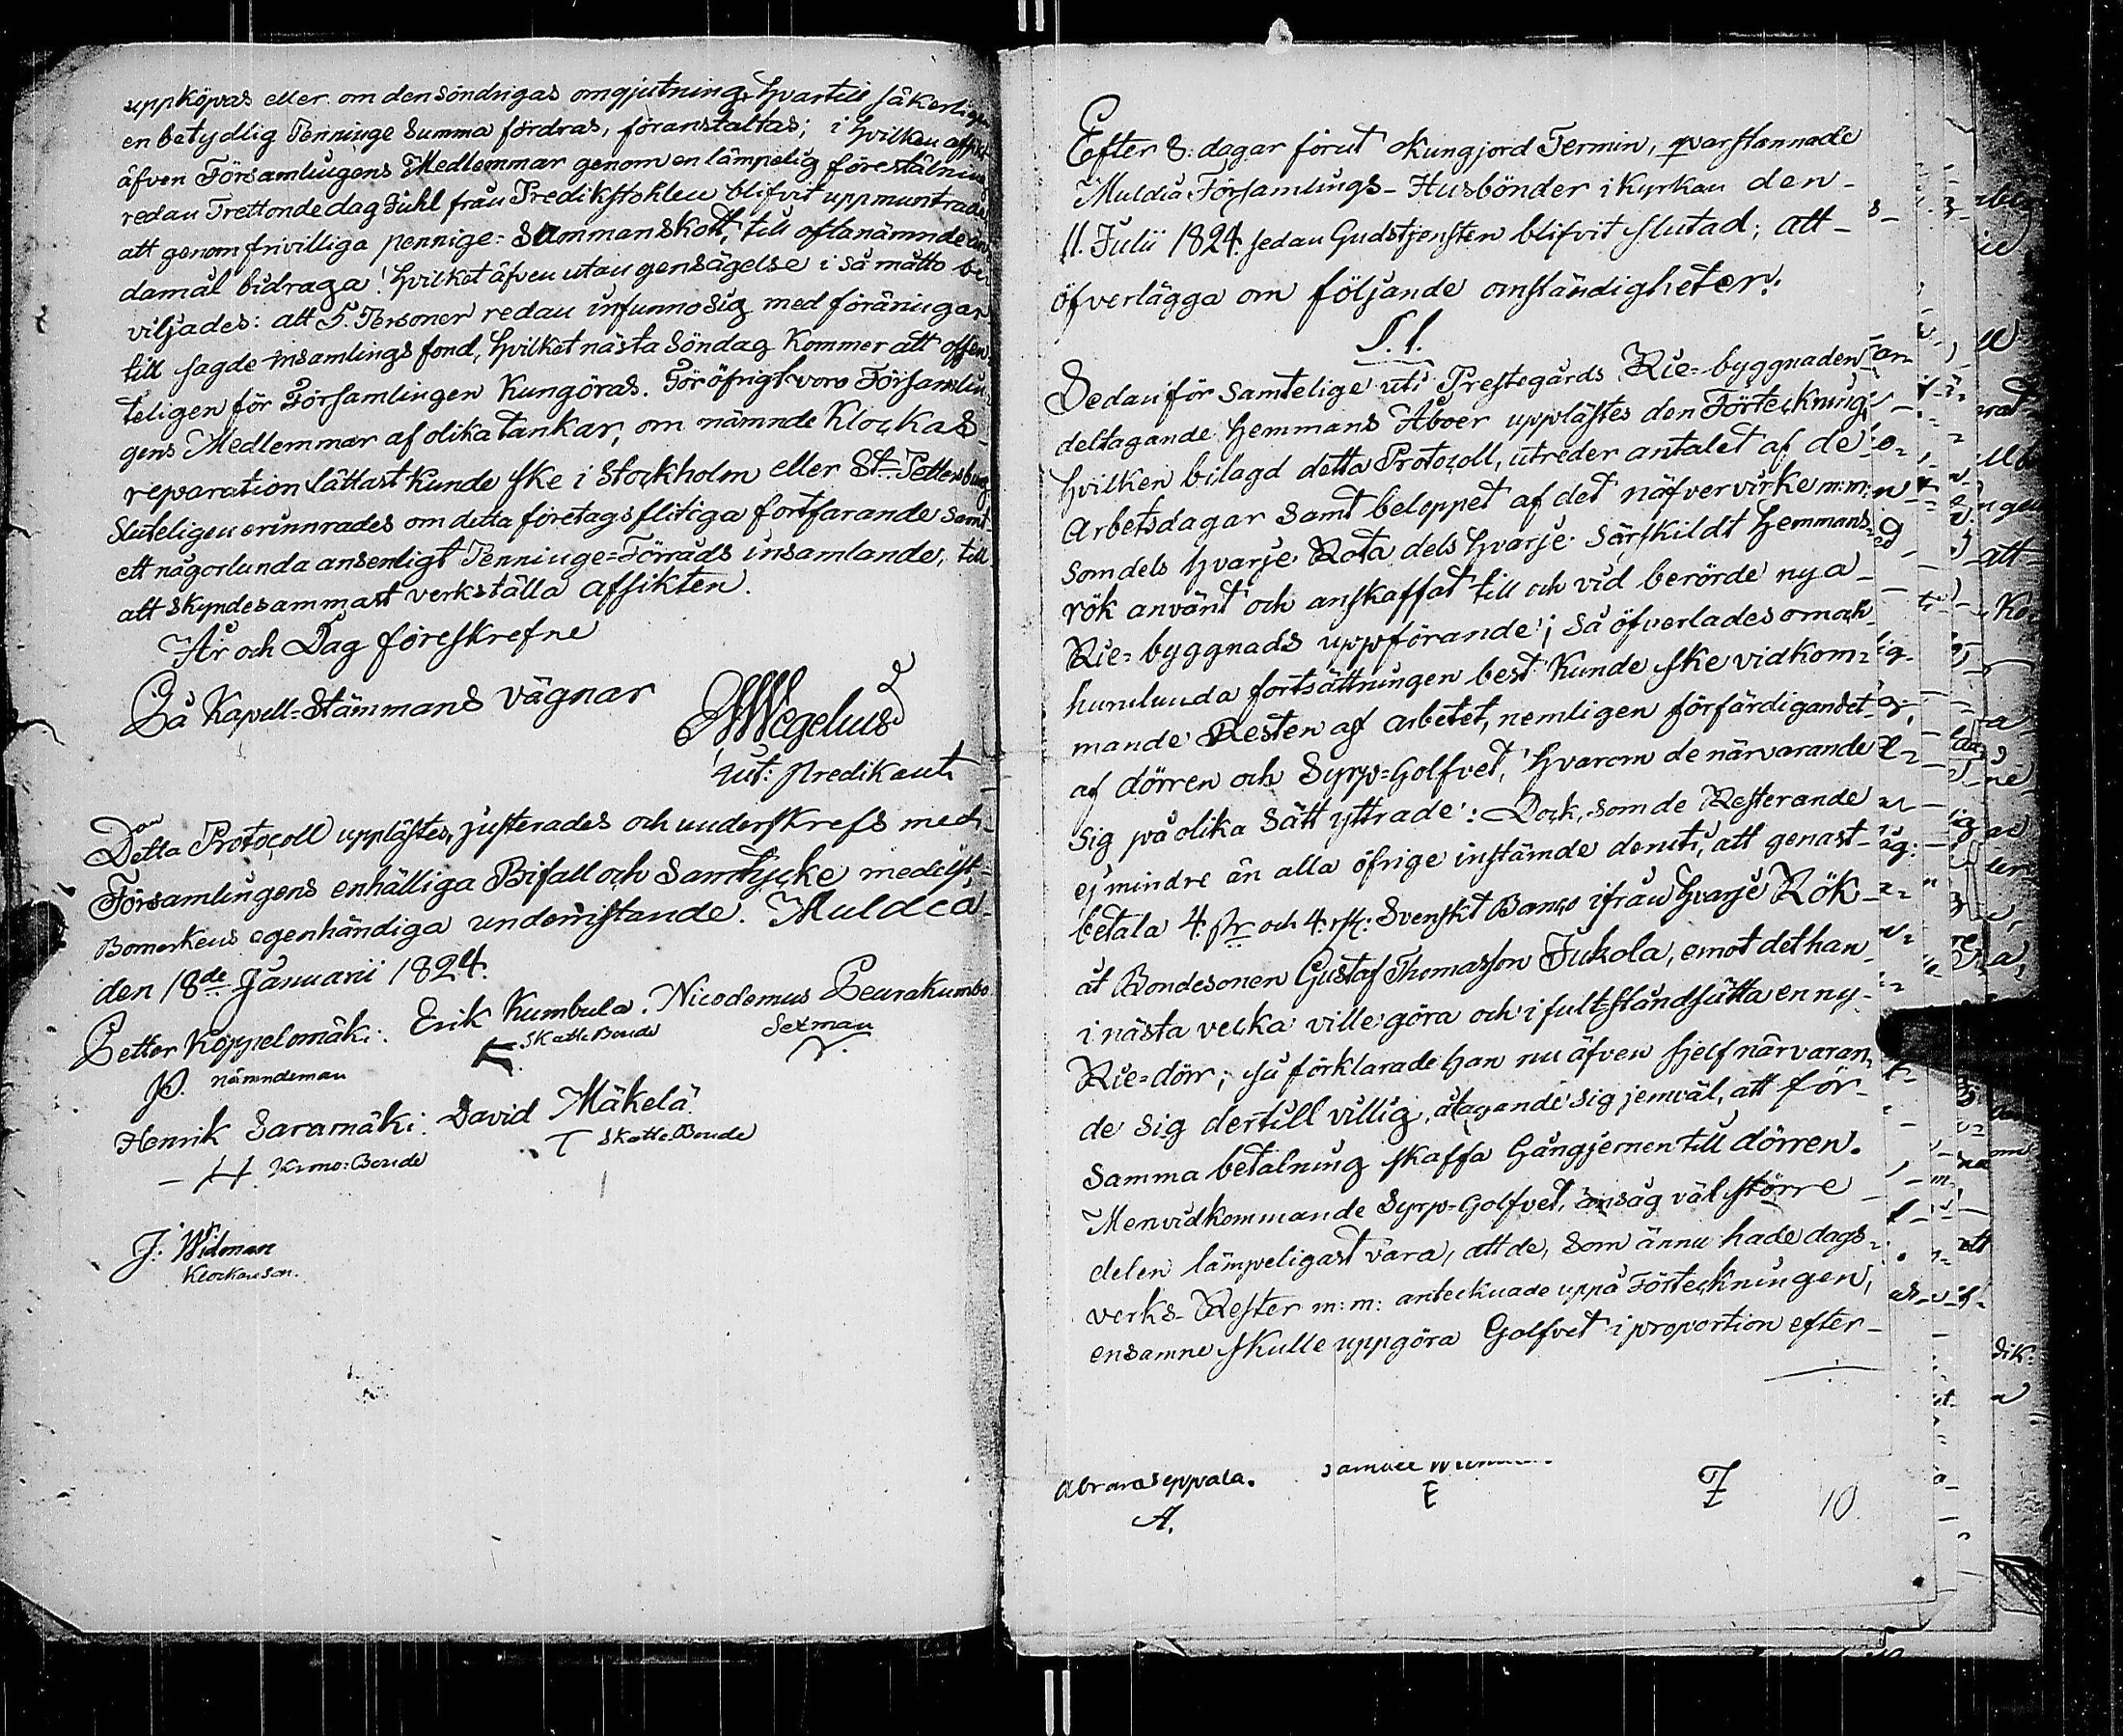 uppköpas eller om den söndrigas omgjutning, hvartill säkerligen
en betydlig Penninge Summa fördras, föranstaltas; i hvilken afsikt
äfven Församlingens Medlemmar genom en lämpelig förestälning
redan Trettondedag Juhl från Predikstohlen blifvit uppmuntrade
att genom frivilliga pennige- Sammanskott, till oftanämnde än
damål bidraga! hvilket äfven utan gensägelse i så måtto be
viljades: att 5. Personer redan infunno sig med föräringar
till sagde insamlings fond, hvilket nästa Söndag kommer att offen
teligen för Församlingen Kungöras. För öfrigt voro Församlin
gens Medlemmar af olika tankar, om nämnde Klockas
reparation lättast kunde ske i Stockholm eller St. Pettersburg
Sluteligen erinnrades om detta företags flitiga fortfarande samt
ett någorlunda ansenligt Penninge=Förråds insamlande, till
att skyndesammast verkställa afsikten.
År och Dag föreskrefne
På Kapell=Stämmans vägnar
Wegelius
ut: predikant
Detta Protocoll upplästes, justerades och underskrefs med
Församlingens enhälliga Bifall och Samtycke medelst
Bomerkens egenhändiga underristande. Muldea
den 18de Januarii 1824.
Petter Koppelomäki. Erik Kumbula. Nicodemus Peurakumbo
P. nämndeman Skatte Bonde Sexman
Henrik Saramäki. David Mäkelä
H Krono=Bonde T Skatte Bonde
J. Widman
Klockareson.
Efter 8. dagar förut Kungjord Termin, qvarstannade
Muldia Församlings- Husbönder i Kyrkan den
11. Julii 1824. sedan Gudstjensten blifvit slutad; att
öfverlägga om följande omständigheter.
§. 1.
Sedan för samtelige uti Prestegårds Rie=byggnaden
deltagande Hemmans Åboer upplästes den Förteckning
hvilken bilagd detta Protocoll, utreder antalet af de
Arbetsdagar samt beloppet af det näfvervirke m:m:
som dels hvarje Rota dels hvarje särskildt Hemmans
rök använt och anskaffat till och vid berörde nya
Rie=byggnads uppförande; så öfverlades om och
hurulunda fortsättningen best kunde ske vidkom=
mande Resten af arbetet, nemligen förfärdigandet
af dörren och Syrp=Golfvet, hvarom de närvarande
sig på olika sätt yttrade: Dock, som de Resterande
ej mindre än alla öfrige instämde deruti, att genast
betala 4. ſk och 4. rſt: Svenskt Banco ifrån hvarje Rök
åt Bondesonen Gustaf Thomasson Jukola, emot det han
i nästa vecka ville göra och i fult stånd sätta en ny
Rie=dörr; så förklarade han nu äfven sjelf närvaran
de sig dertill villig, åtagande sig jemväl, att för
samma betalning skaffa Gångjernen till dörren.
Men vidkommande Syrp=Golfvet, ansåg väl större
delen lämpeligast vara, att de, som ännu hade dags=
verks=Rester m:m: antecknade uppå Förteckningen,
ensamne skulle uppgöra Golfvet i proportion efter
Abram Seppala. Samuel
A. E F 10